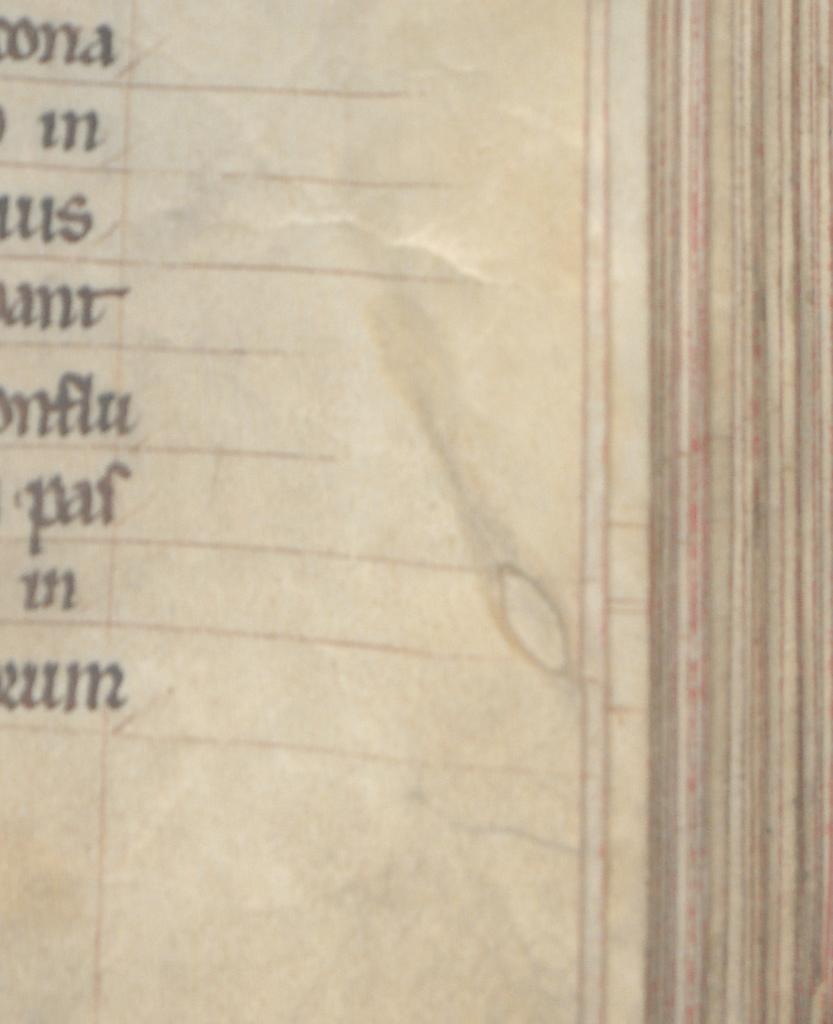 cona
in
uus
pant
onflu
paſ
in
rum